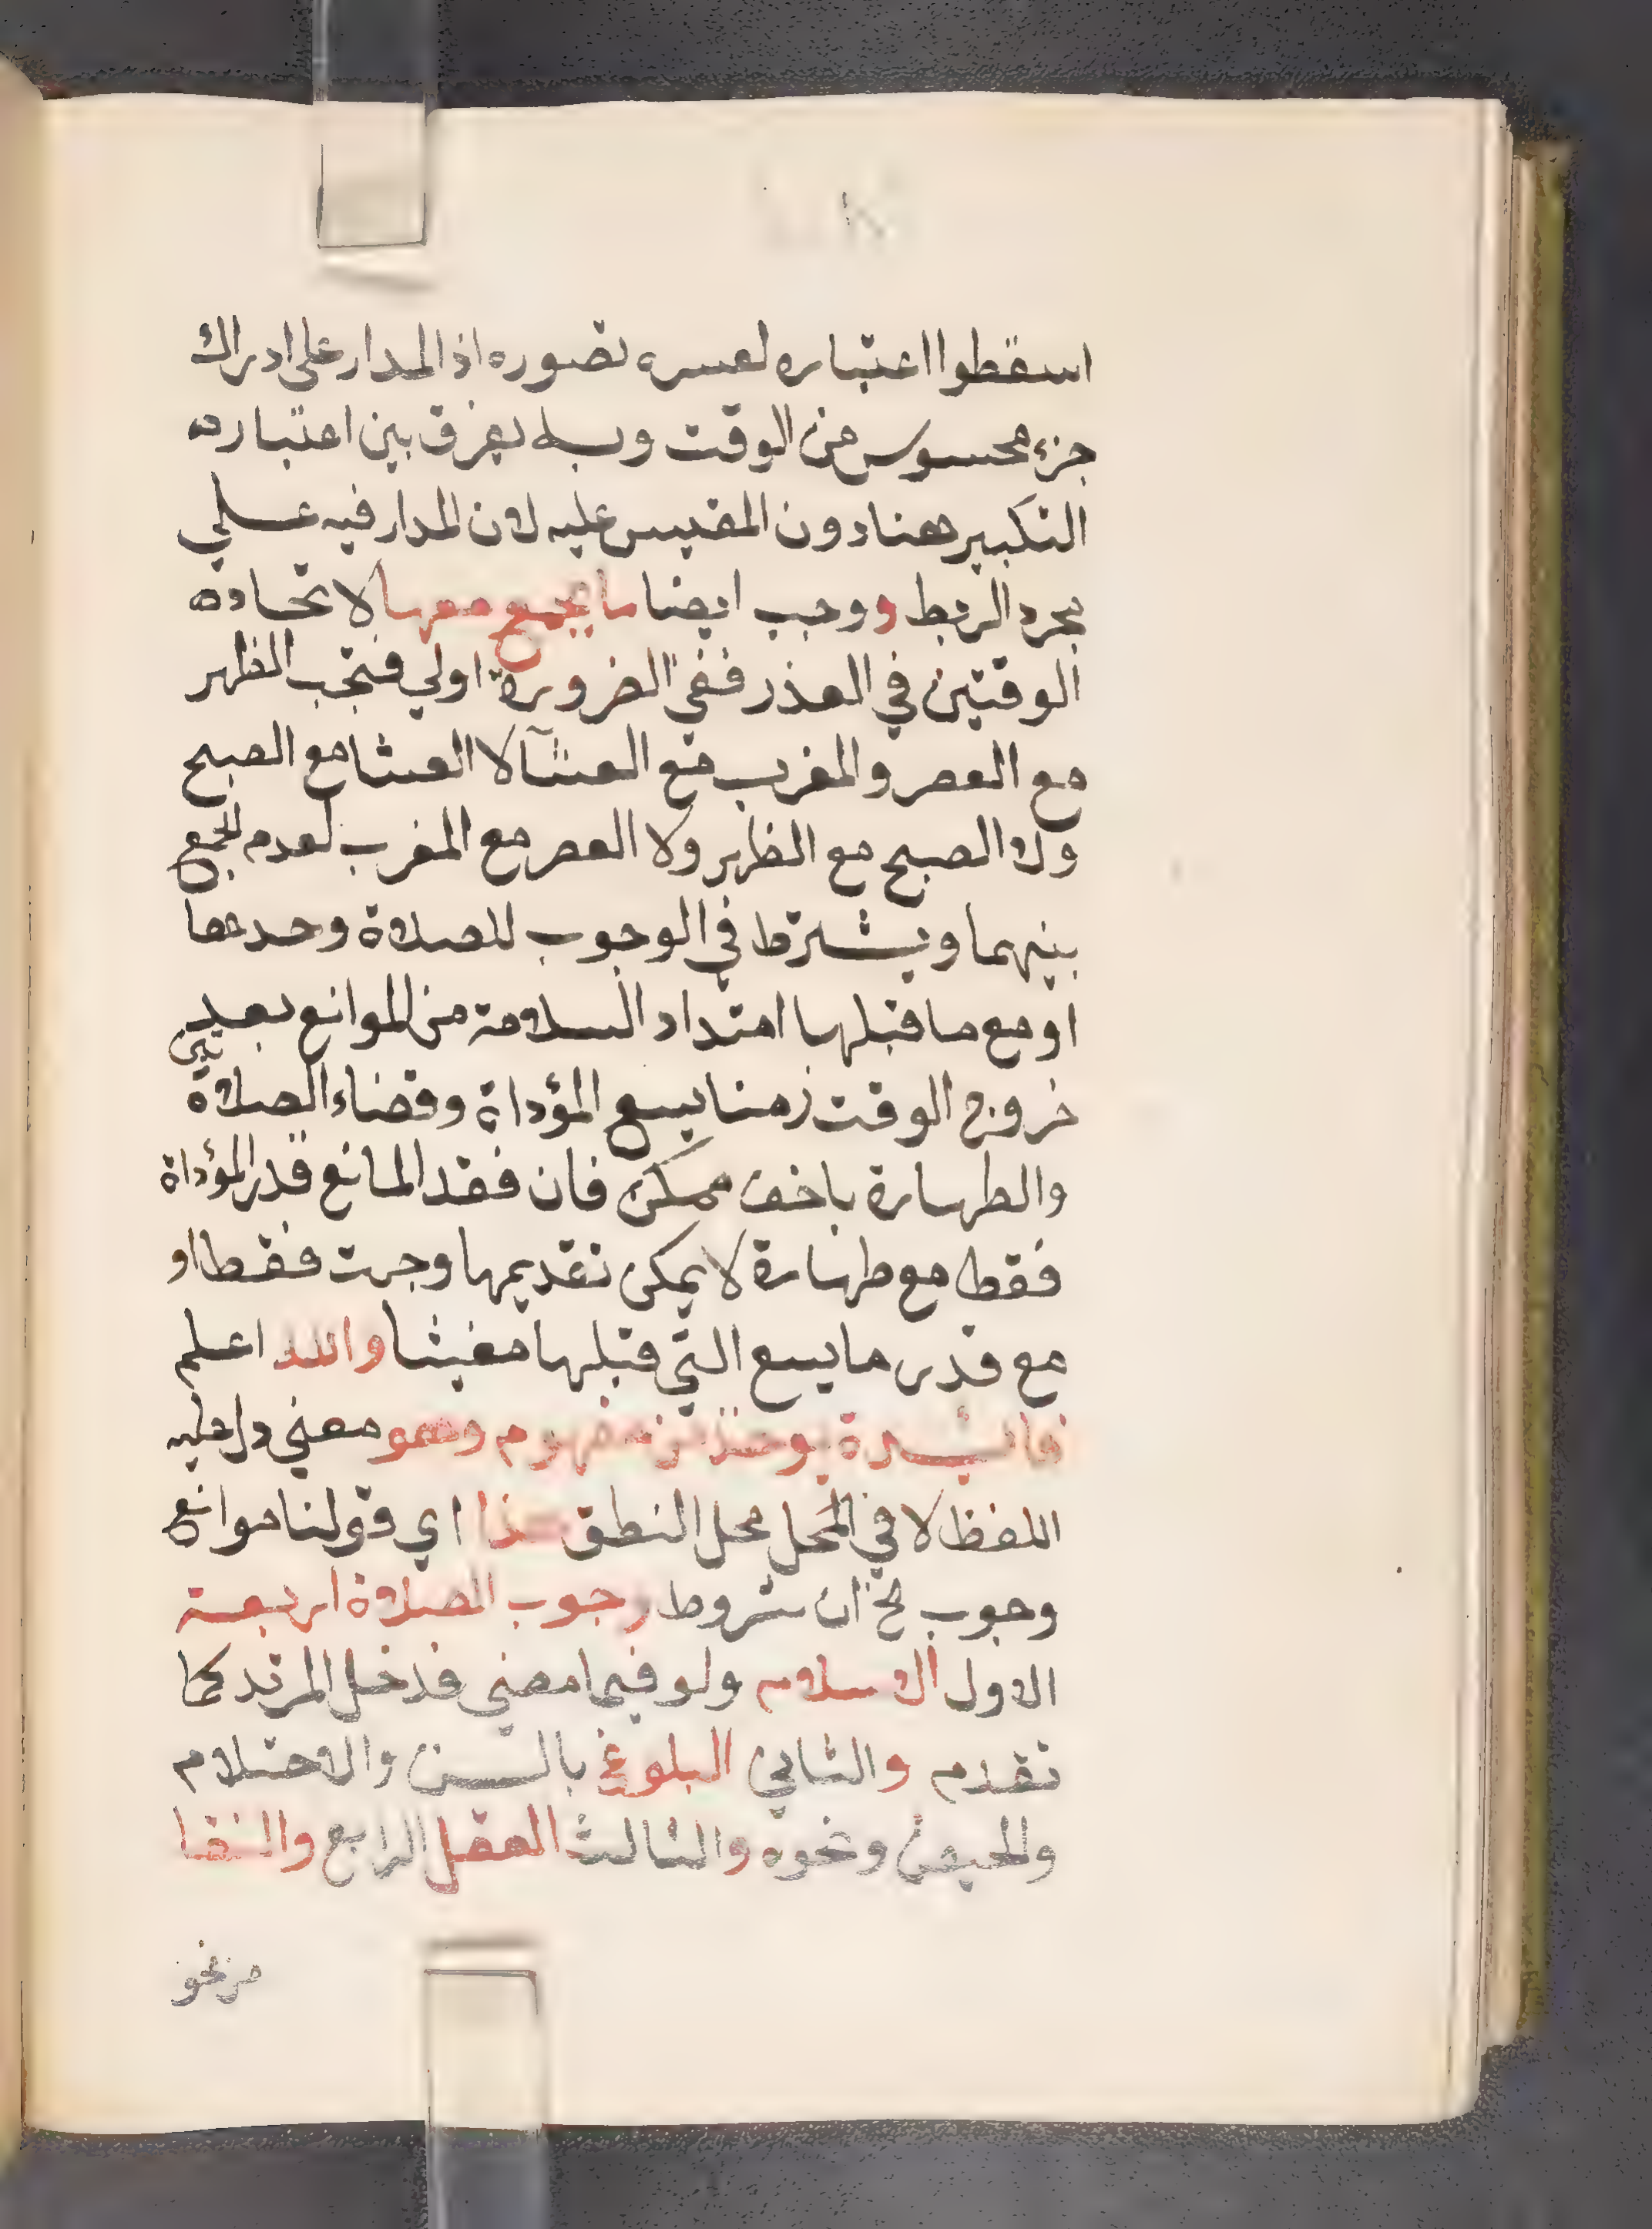 اسقطوا اعتباره لعسره تصوره اذ المدار على ادراك
جزء محسوس من الوقت وبه يفرق بين اعتباره
التكبير هنا دون المقيس عليه لان المدار فيه علي
مجرد الربط ووجب ايضا ما يجمع معها لاتحاده
الوقتين في العذر ففي الضرورة اولي فتجب الظهر
مع العصر والمغرب مع العشآ لا العشا مع الصبح
ولا الصبح مع الظهر ولا العصر مع المغرب لعدم الجمع
بينهما ويشترط في الوجوب للصلاة وحدها
او مع ما قبلها امتداد السلامة من الموانع بعد
خروج الوقت زمنا يسع المؤداة وقضاء الصلاة
والطهارة باخف ممكن فان فقد المانع قدر المؤداة
فقط مع طهارة لا يمكن تقديمها وجبت فقط او
مع قدر ما يسع التي قبلها مغيثا والله اعلم
يوخذ من مفهوم وهو معني دل عليه
اللفظ لا في المحل محل النطق هذا اي قولنا موانع
وجوب الخ ان شروط وجوب الصلاة اربعة
الاول الاسلام ولو فيما مضي فدخل المرتد كما
تقدم والثاني البلوغ بالسن والاحتلام
والحيض ونحوه والثالث العقل الرابع والنقا
من نحو